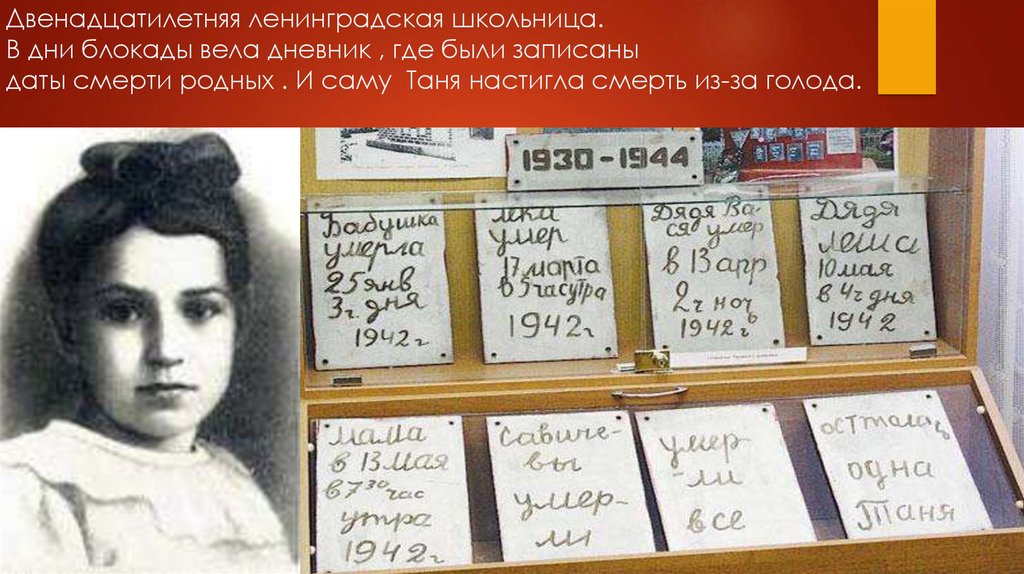 Двенадцатилетняя ленинградская школьница.
В дни блокады вела дневник , где были записаны
даты смерти родных . И саму Таня настигла смерть из-за голода.
1930-1944
Бабушка
умерла
25 янв
3 г. дня
1942 г
лека
умер
17 марта
в 5 час утра
1942 г
Дядя Ва-
ся умер
в 13 апр
2 ч ноч
1942 г
Дядя
Леша
10 мая
в 4 ч дня
1942
мама
в 13 мая
в 7 30 час
утра
1942 г
Савиче-
вы
умер-
ли
умер-
-ли
все
осттала ь
одна
Таня